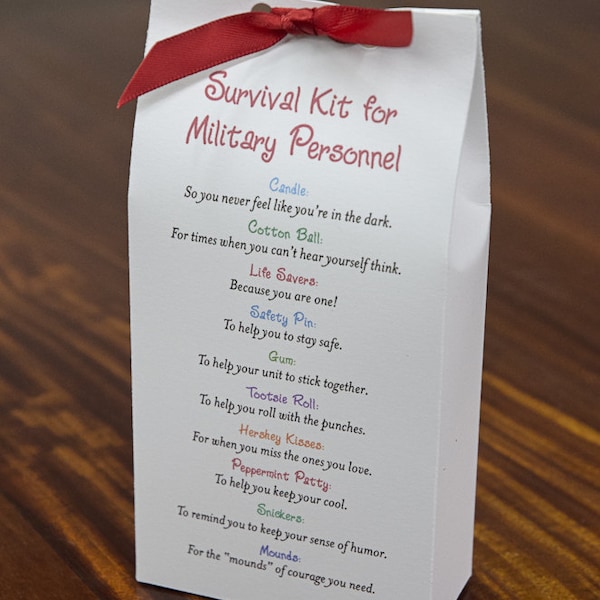 Survival Kit for
Military Personnel
Candle:
So you never feel like you're in the dark.
Cotton Ball:
For times when you can't hear yourself think.
Life Savers:
Because you are one!
Safety Pin:
To help you to stay safe.
Gum:
To help your unit to stick together.
Tootsie Roll:
To help you roll with the punches.
Hershey Kisses:
For when you miss the ones you love.
Peppermint Patty:
To help you keep your cool.
Snickers:
To remind you to keep your sense of humor.
Mounds:
For the "mounds" of courage you need.